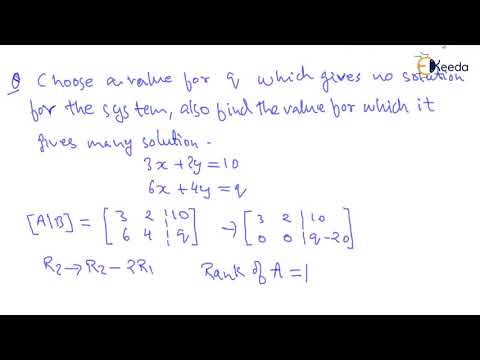 Keeda
Q Choose a value for q which gives no solution
for the system, also find the value for which it
gives many solution.
3x + 2y = 10
6x + 4y = q
[A|B] = [ 3 2 | 10 → [ 3 2 | 10
6 4 | q ] 0 0 | q-20 ]
R2 → R2 - 2R1 Rank of A = 1